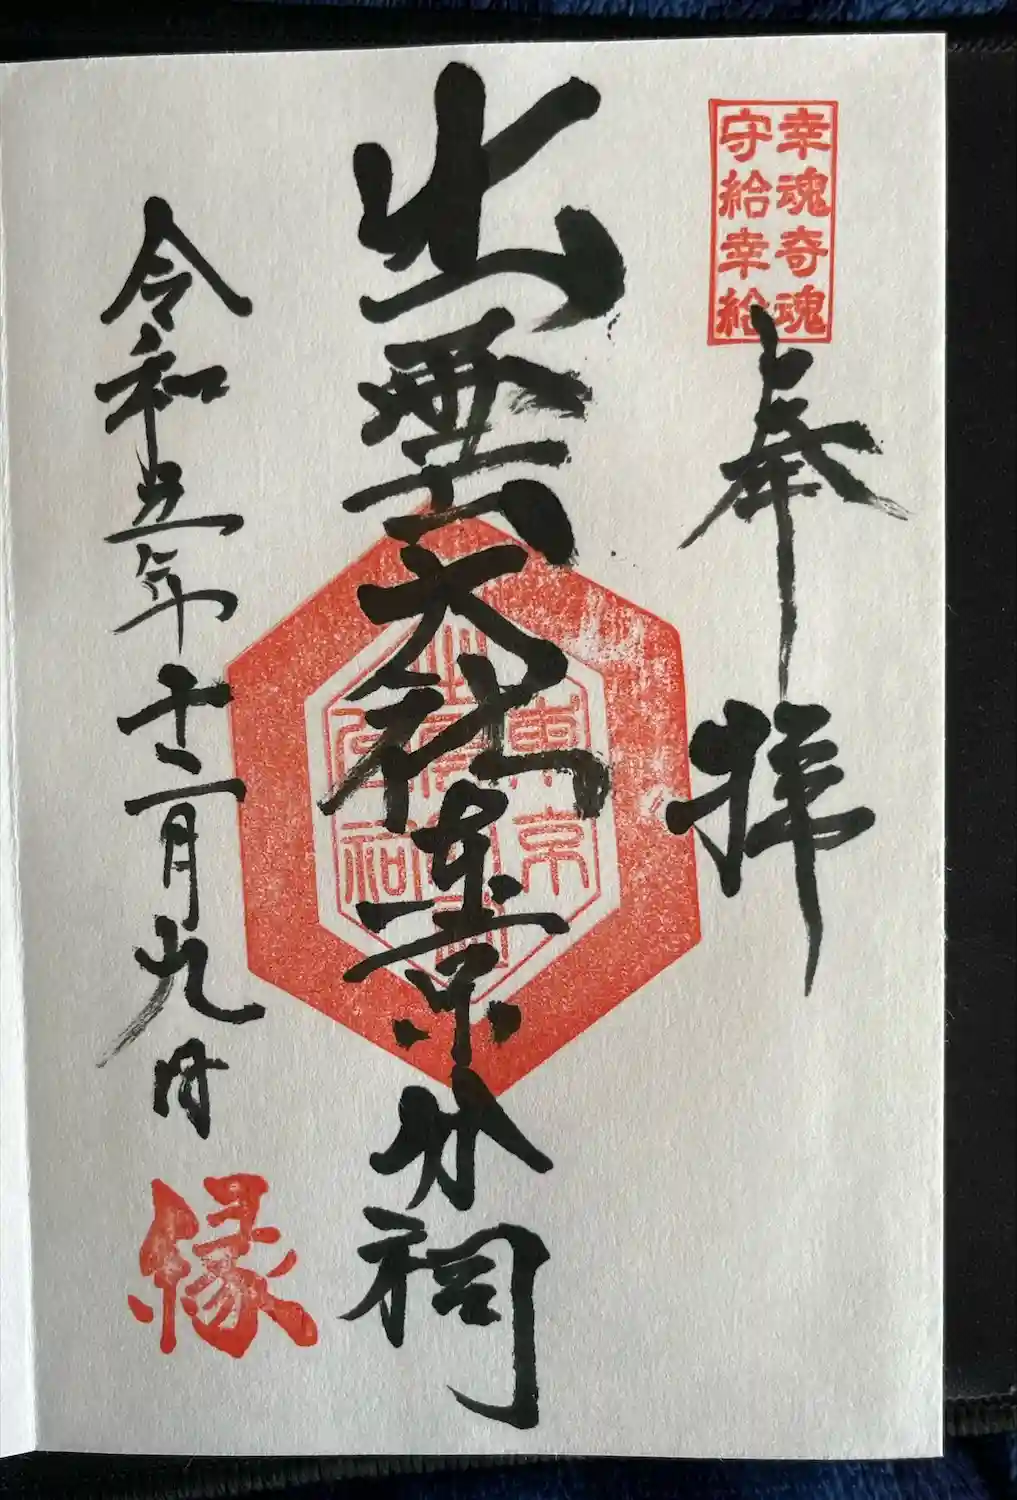 幸魂奇魂
守給幸給
奉拝
出雲大社東京分祠
東京
出雲大社
分祠
令和五年十二月九日
縁